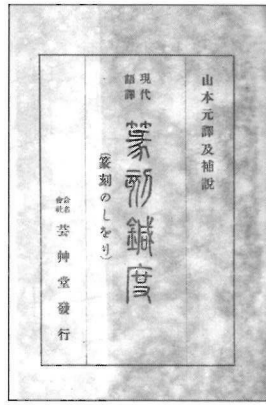 山本元譯及補說
現代
語譯
篆刻鍼度
(篆刻のしをり)
合名
會社
芸艸堂發行